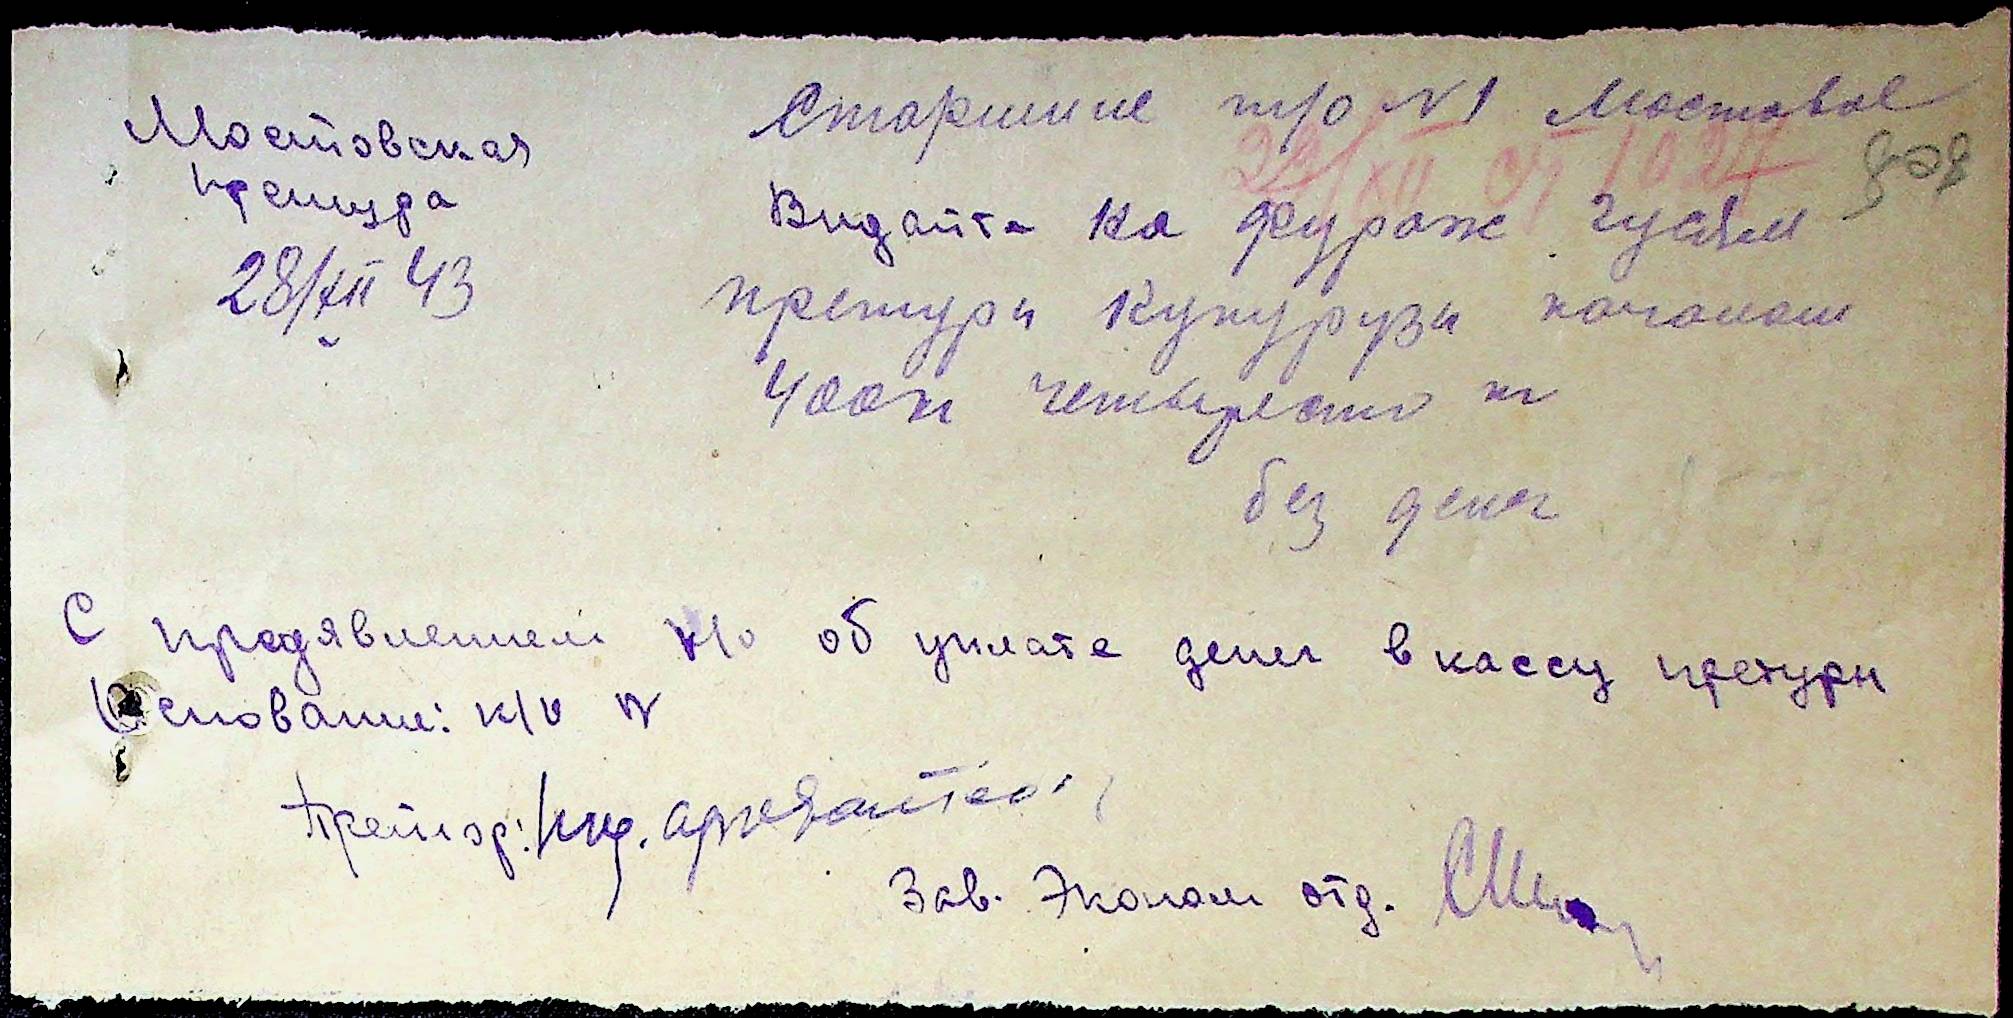 Мостовская
претура
28/XII 43
Старшине т/о N1 Мостовое
28/XII 1024
Видайте на фураж гусям
претури кукурузи початом
400кг четыреста кг
без денег
С предявлением к/о об уплате денег в кассу претури
Основание: к/о №
Претор: инж.
Зав. Эконом отд.